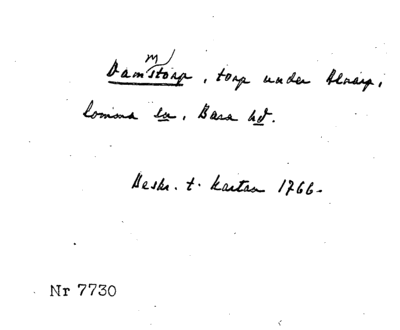 Dammstorp, torp under Alnarp,
Lomma sn, Bara hd.
Beskr. t. kartan 1766.
Nr 7730